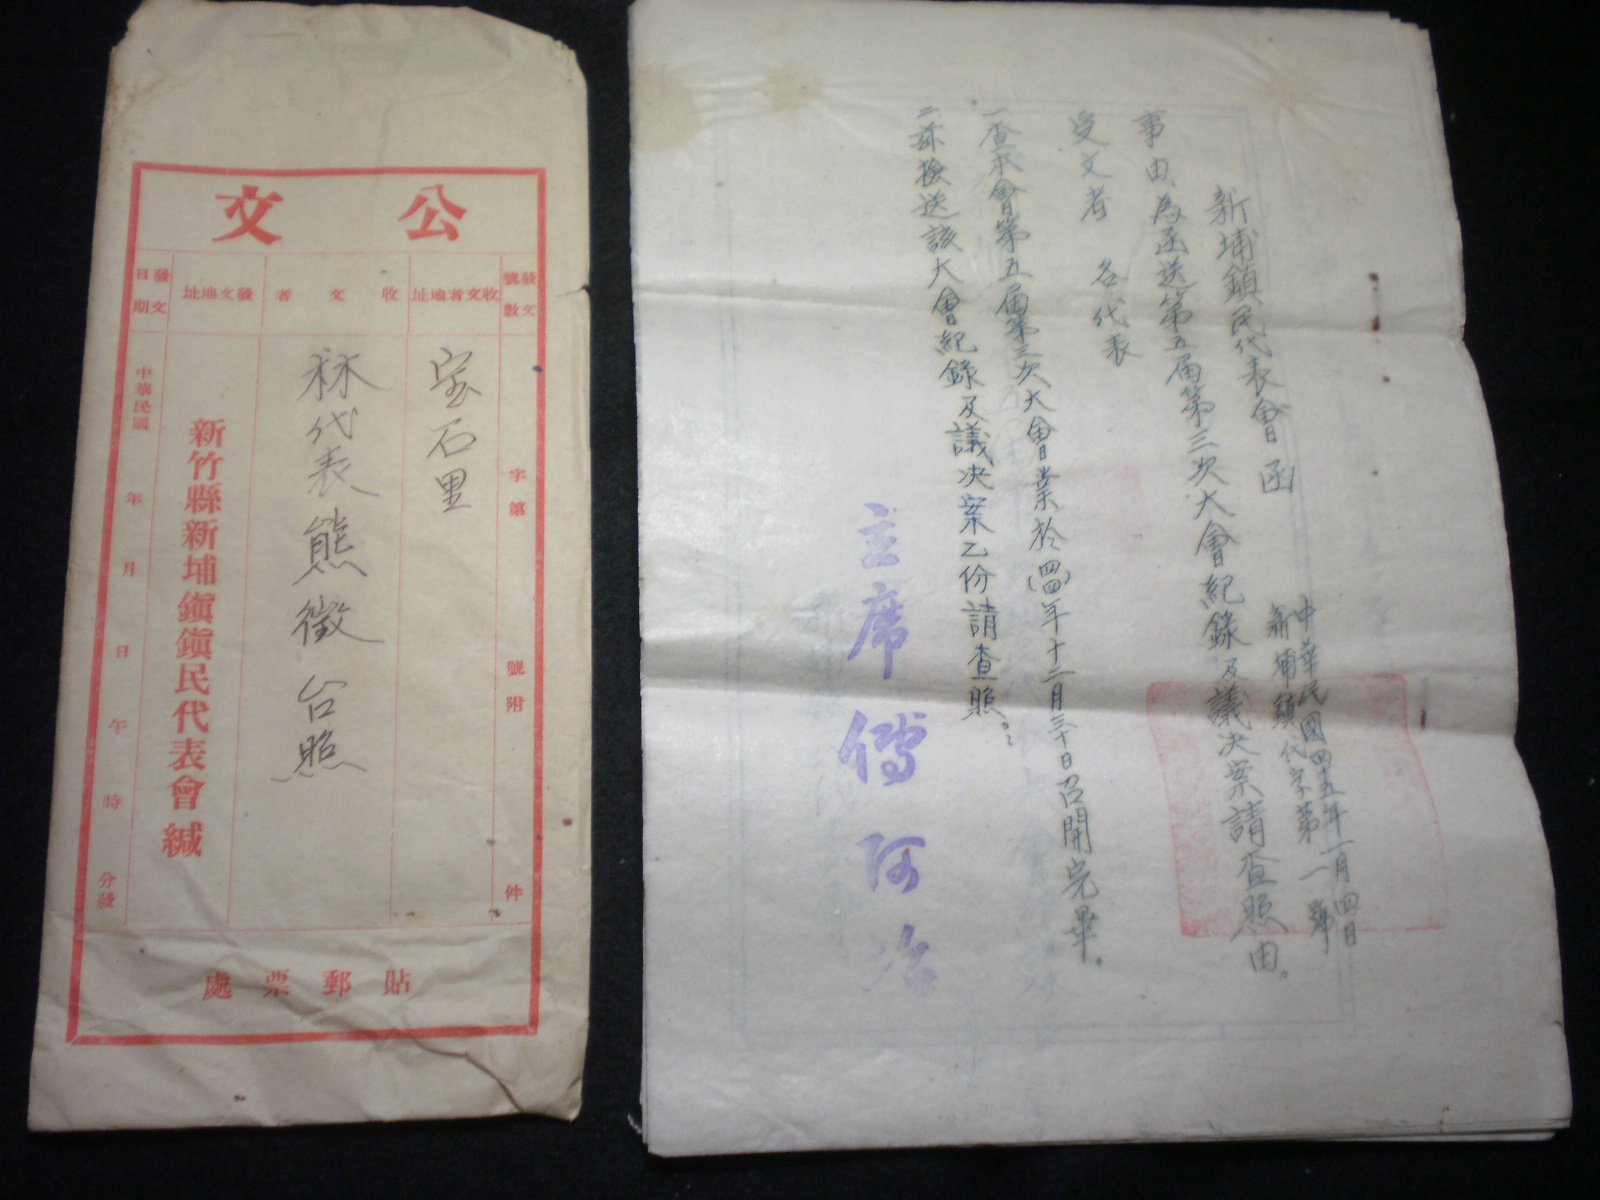 公文
發文號數
收文者地址
收文者
發文地址
發文日期
字第 號附 件
宝石里
林代表熊徵 台照
新竹縣新埔鎮鎮民代表會 緘
中華民國 年 月 日 午 時 分發
貼郵票處
新埔鎮民代表會 函
中華民國四十五年一月四日
新埔鎮代字第一號
事由 為函送第五届第三次大會紀錄及議決案請查照由。
受文者 各代表
一查本會第五届第三次大會業於(四四)年十二月三十日召開完畢。
二茲檢送該大會紀錄及議決案乙份請查照。
主席 傅阿